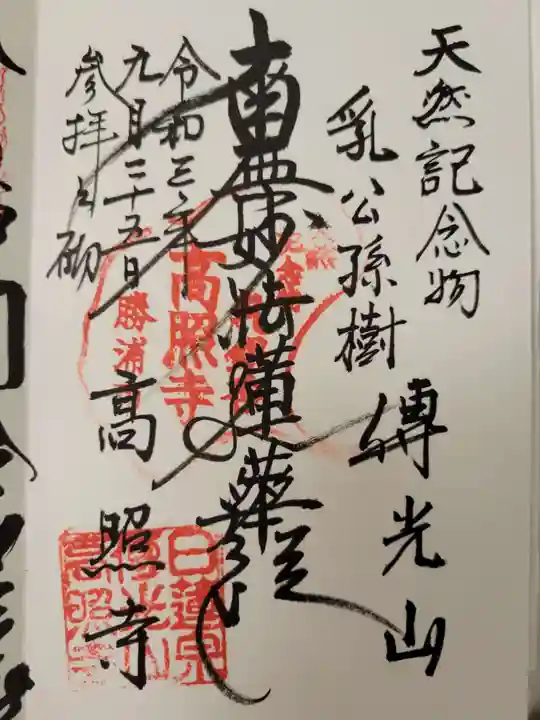 天然記念物
乳公孫樹
傳光山
南無妙法蓮華経
令和三年
九月二十五日
参拝之砌
高照寺
高照寺
勝浦
日蓮宗
傳光山
高照寺